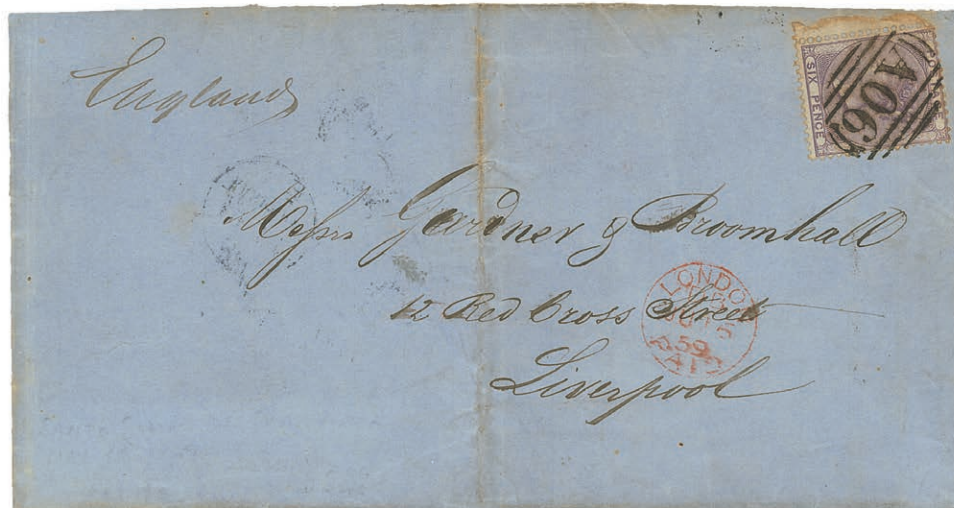 England
SIX PENCE
A06
Messrs Gardner & Broomhall
12 Red Cross Street
Liverpool
LONDON
15
59
PAID